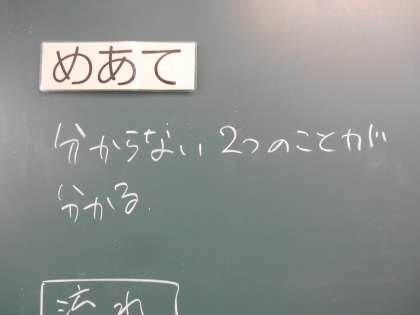 めあて
分からない2つのことが
分かる.
流れ